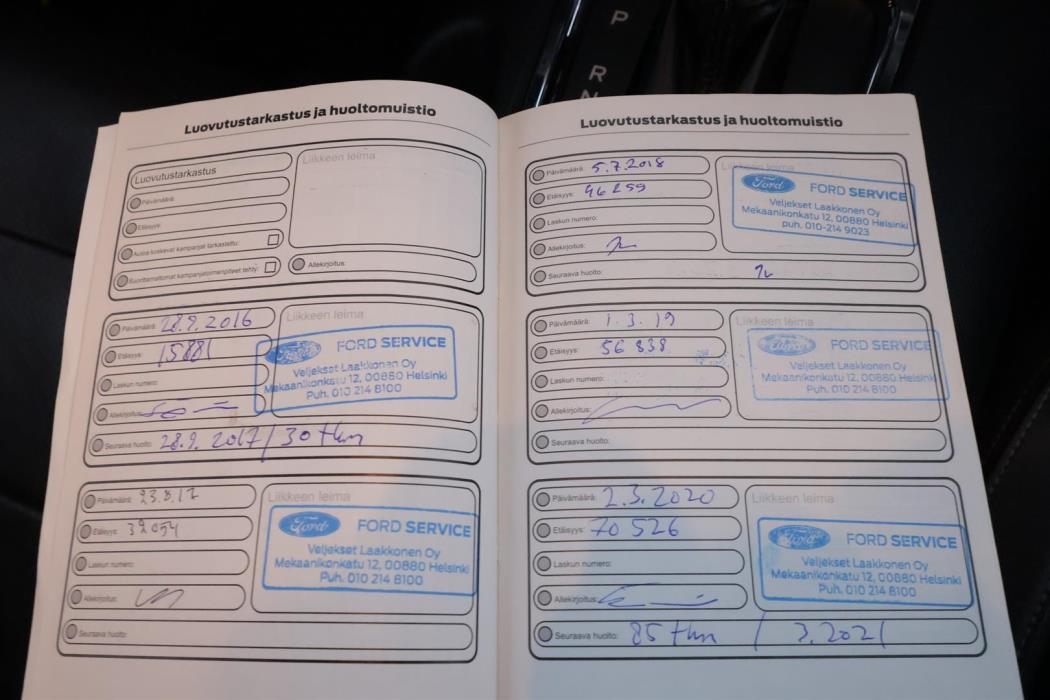 P
R
N
Luovutustarkastus ja huoltomuistio
Luovutustarkastus
Päivämäärä:
Etäisyys:
Autoa koskevat kampanjat tarkastettu:
Suorittamattomat kampanjatoimenpiteet tehty:
Liikkeen leima
Allekirjoitus:
Päivämäärä: 28.9.2016
Etäisyys: 15881
Laskun numero:
Allekirjoitus:
Seuraava huolto: 28.9.2017/30 tkm
Liikkeen leima
Ford FORD SERVICE
Veljekset Laakkonen Oy
Mekaanikonkatu 12, 00880 Helsinki
Puh. 010 214 8100
Päivämäärä: 23.8.17
Etäisyys: 32054
Laskun numero:
Allekirjoitus:
Seuraava huolto:
Liikkeen leima
Ford FORD SERVICE
Veljekset Laakkonen Oy
Mekaanikonkatu 12, 00880 Helsinki
Puh. 010 214 8100
Luovutustarkastus ja huoltomuistio
Päivämäärä: 5.7.2018
Etäisyys: 46259
Laskun numero:
Allekirjoitus:
Seuraava huolto:
Liikkeen leima
Ford FORD SERVICE
Veljekset Laakkonen Oy
Mekaanikonkatu 12, 00880 Helsinki
puh. 010-214 9023
Päivämäärä: 1.3.19
Etäisyys: 56 838
Laskun numero:
Allekirjoitus:
Seuraava huolto:
Liikkeen leima
Ford FORD SERVICE
Veljekset Laakkonen Oy
Mekaanikonkatu 12, 00880 Helsinki
Puh. 010 214 8100
Päivämäärä: 2.3.2020
Etäisyys: 70 526
Laskun numero:
Allekirjoitus:
Seuraava huolto: 85 tkm / 3.2021
Liikkeen leima
Ford FORD SERVICE
Veljekset Laakkonen Oy
Mekaanikonkatu 12, 00880 Helsinki
Puh. 010 214 8100